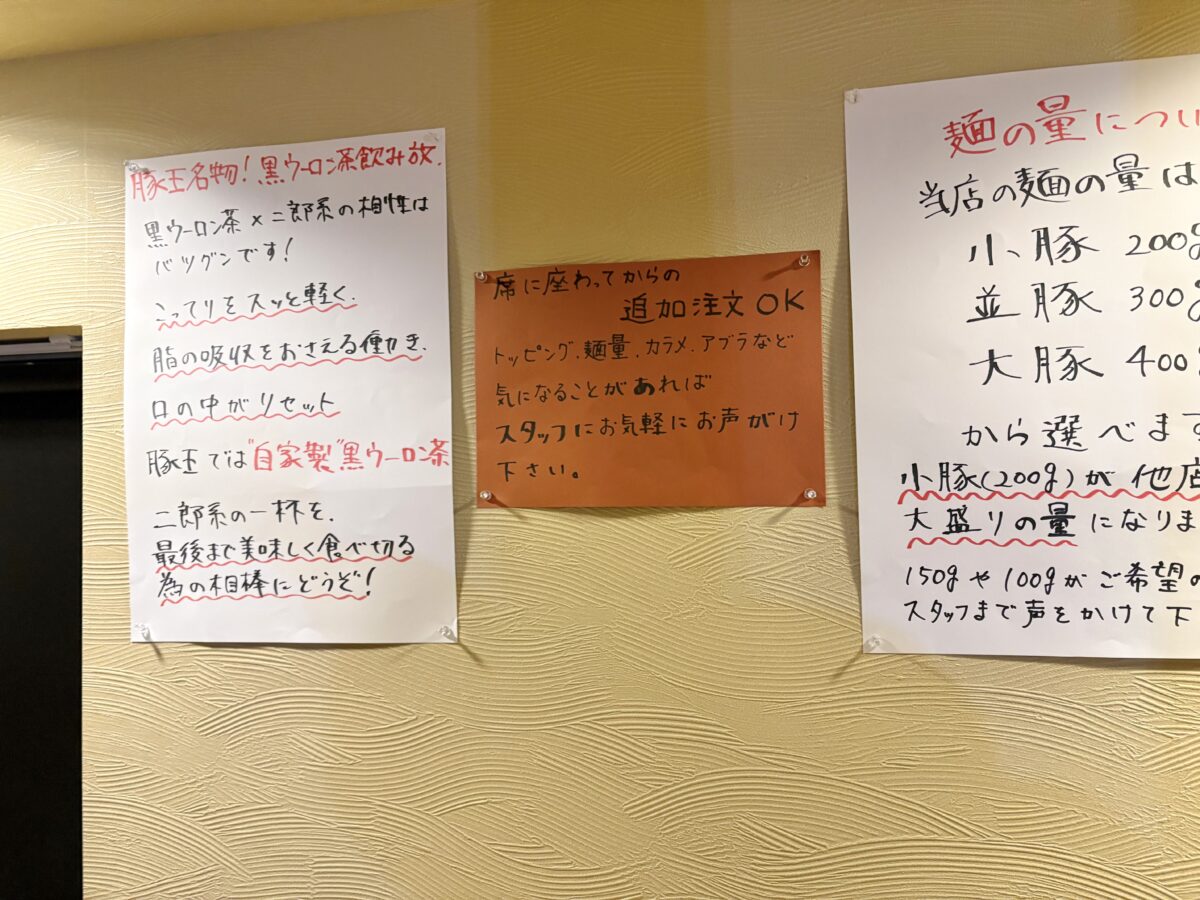 豚王名物！黒ウーロン茶飲み放.
黒ウーロン茶×二郎系の相性は
バツグンです！
こってりをスッと軽く.
脂の吸収をおさえる働き.
口の中がリセット
豚王では"自家製"黒ウーロン茶
二郎系の一杯を.
最後まで美味しく食べ切る
為の相棒にどうぞ！
席に座わってからの
追加注文OK
トッピング.麺量.カラメ.アブラなど
気になることがあれば
スタッフにお気軽にお声がけ
下さい。
麺の量につい
当店の麺の量は
小豚 200g
並豚 300g
大豚 400g
から選べます
小豚(200g)が他店
大盛りの量になりま
150gや100gがご希望の
スタッフまで声をかけて下